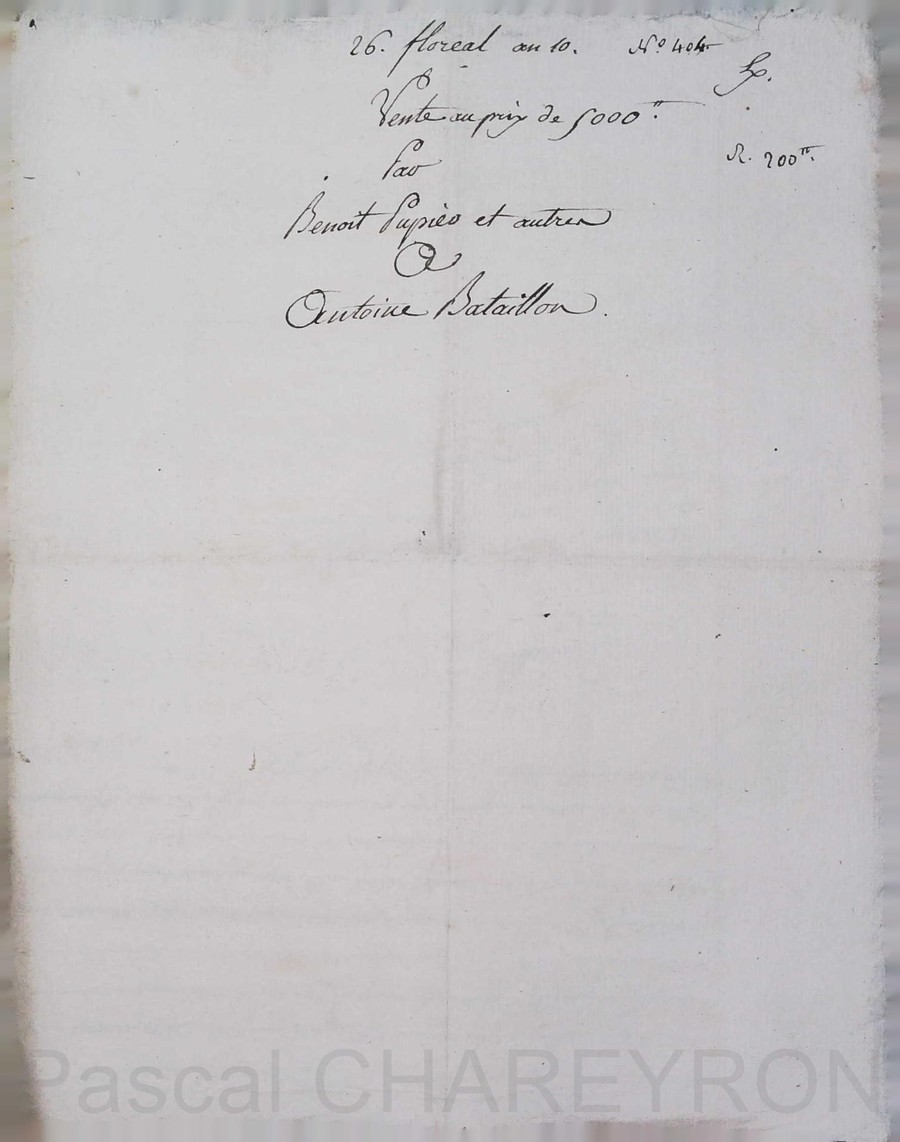 26. floreal an 10. N.º 404
Vente au prix de 5000 ".
Par
R. 200 tt.
Benoit Pupier et autres
A
Antoine Bataillon.
Pascal CHAREYRON